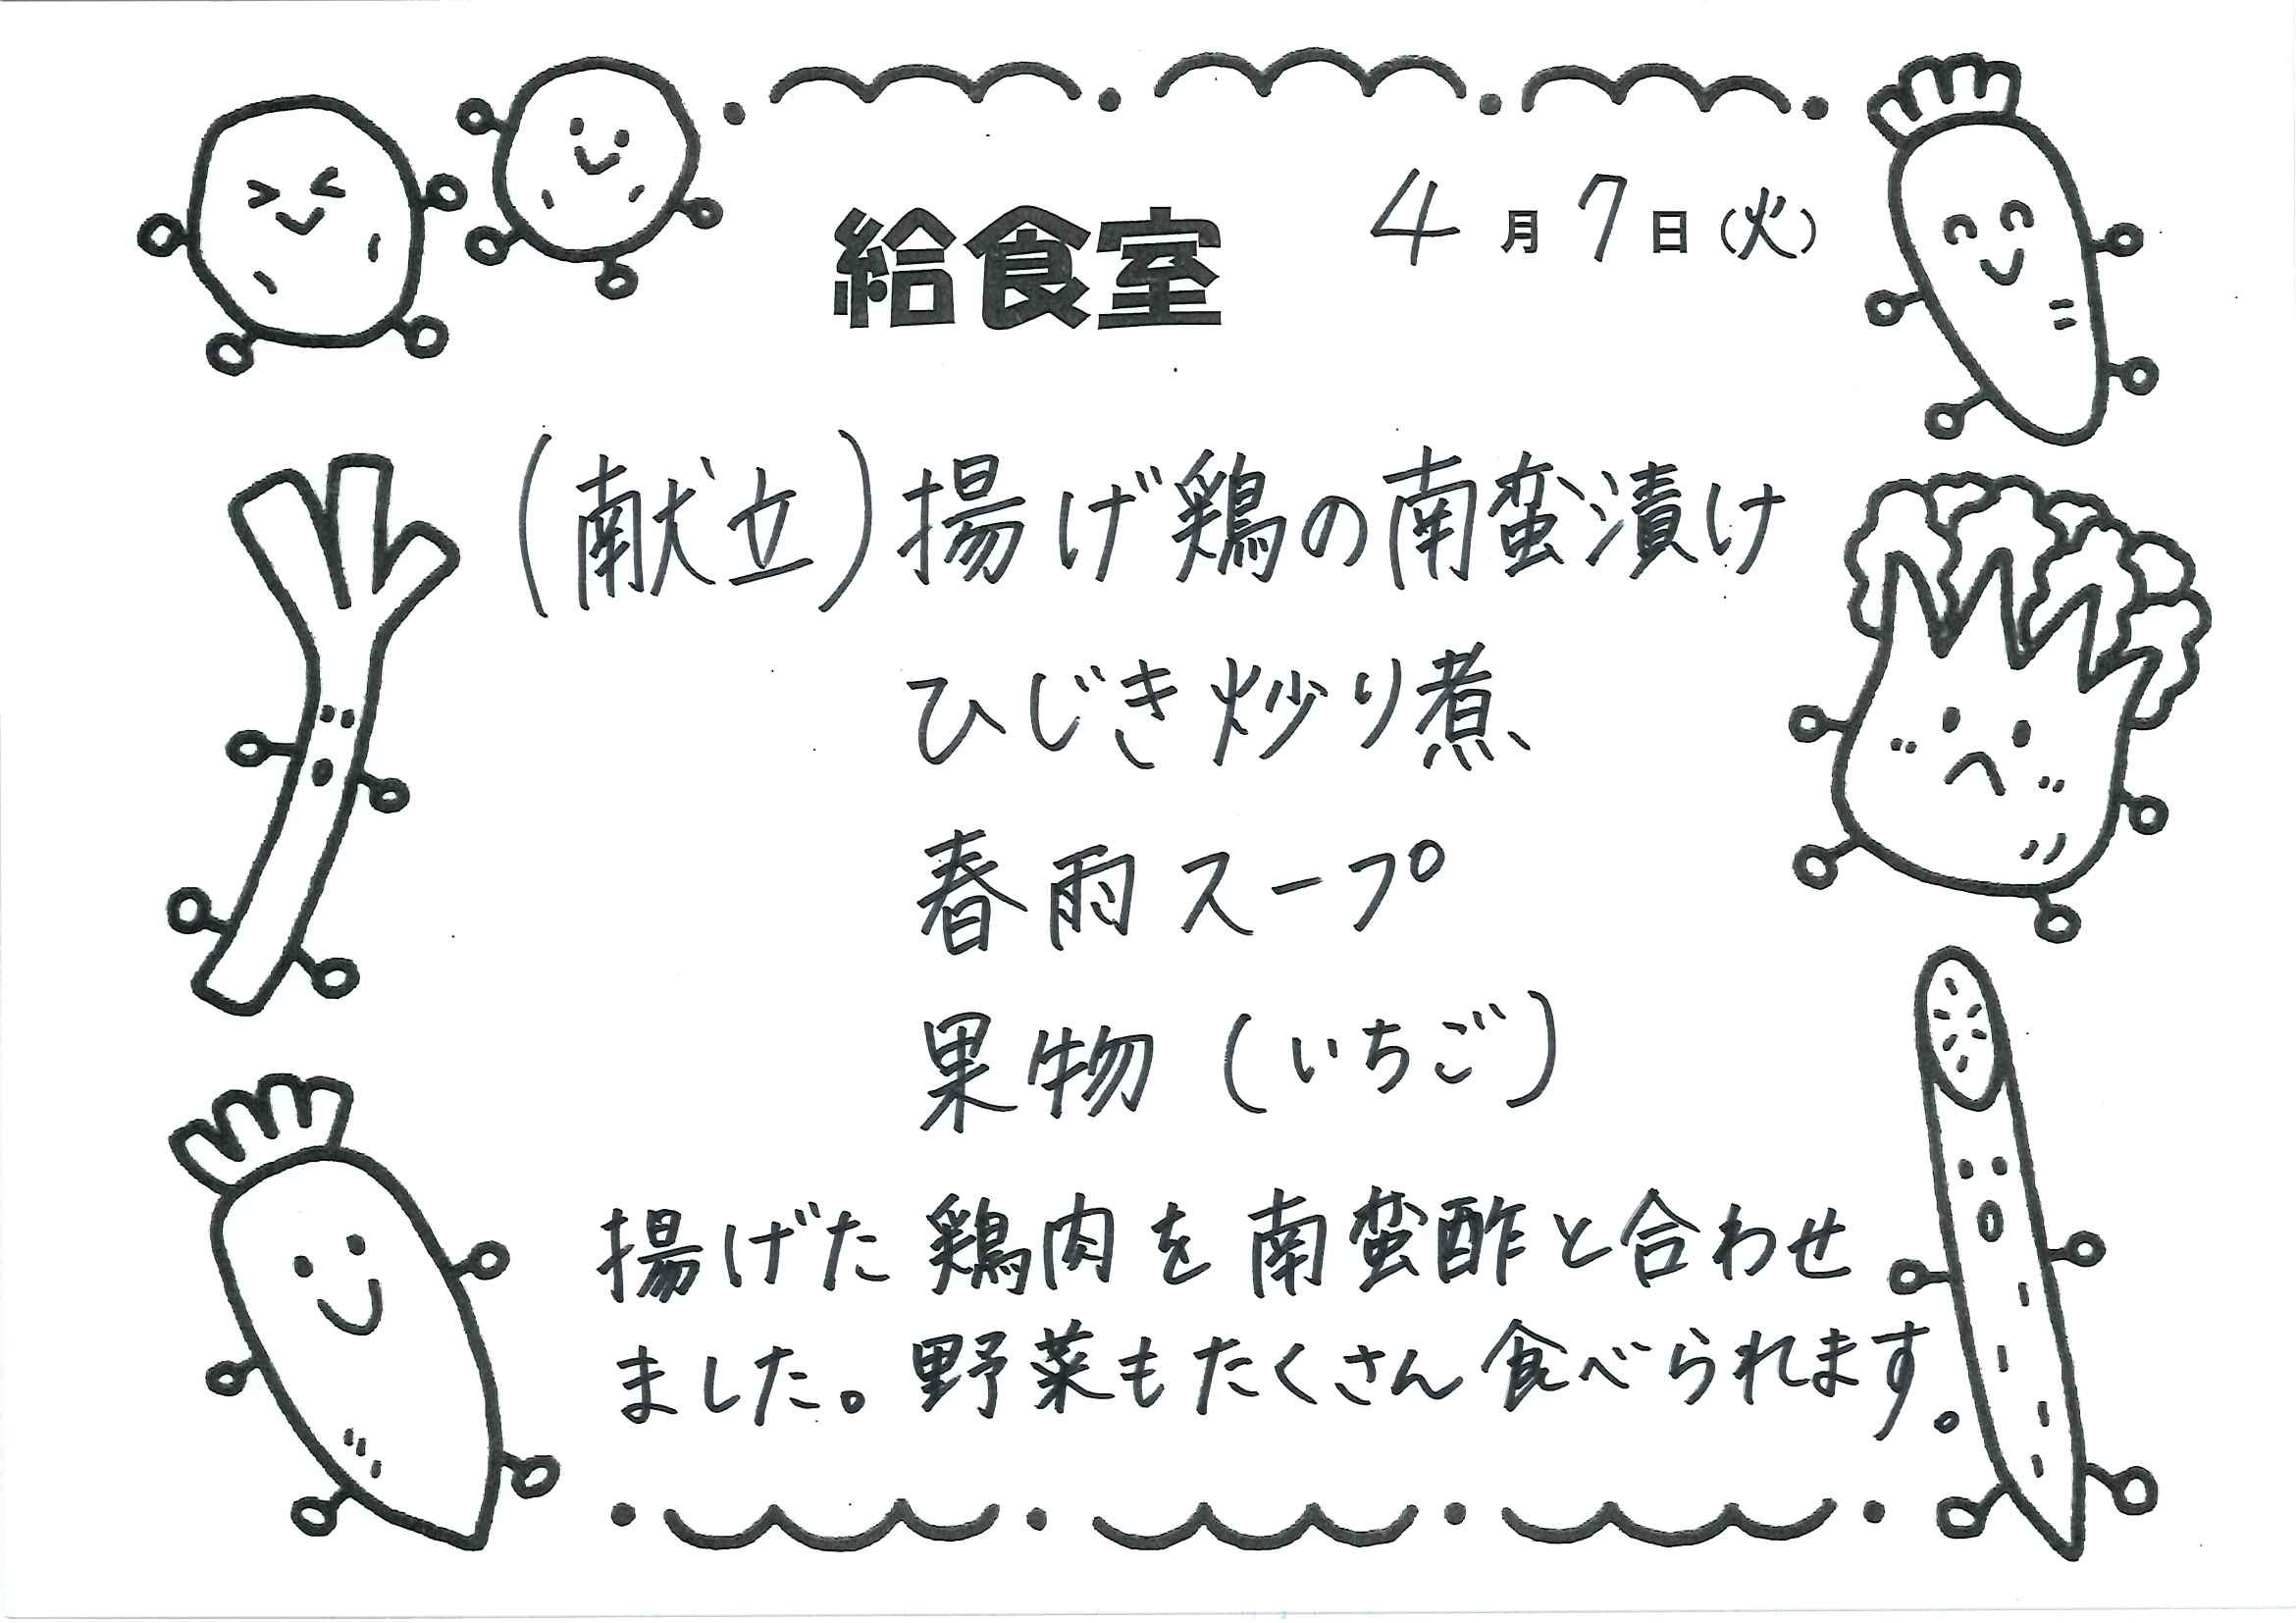 給食室
4月7日(火)
(献立)揚げ鶏の南蛮漬け
ひじき炒り煮
春雨スープ
果物(いちご)
揚げた鶏肉を南蛮酢と合わせ
ました。野菜もたくさん食べられます。